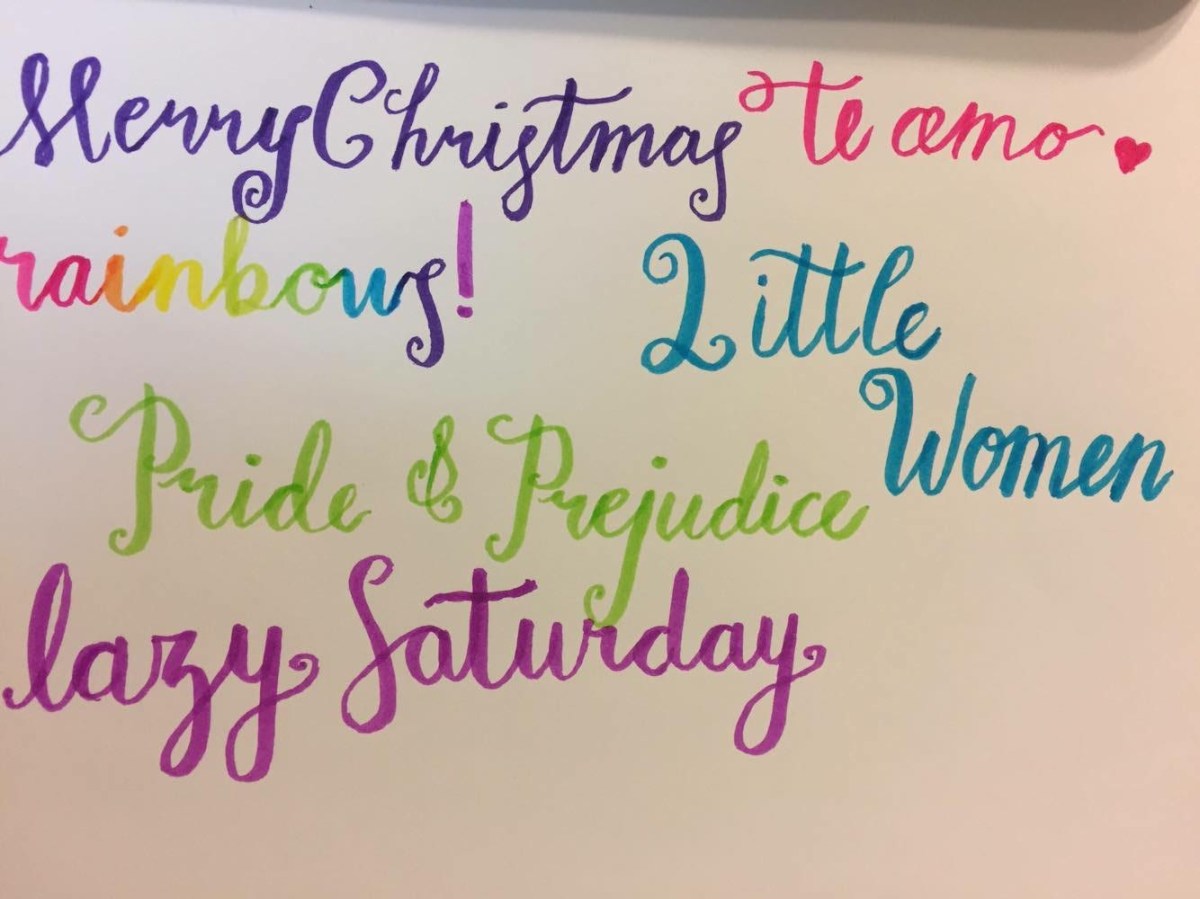 Merry Christmas te amo
rainbows!
Little
Women
Pride & Prejudice
lazy Saturday